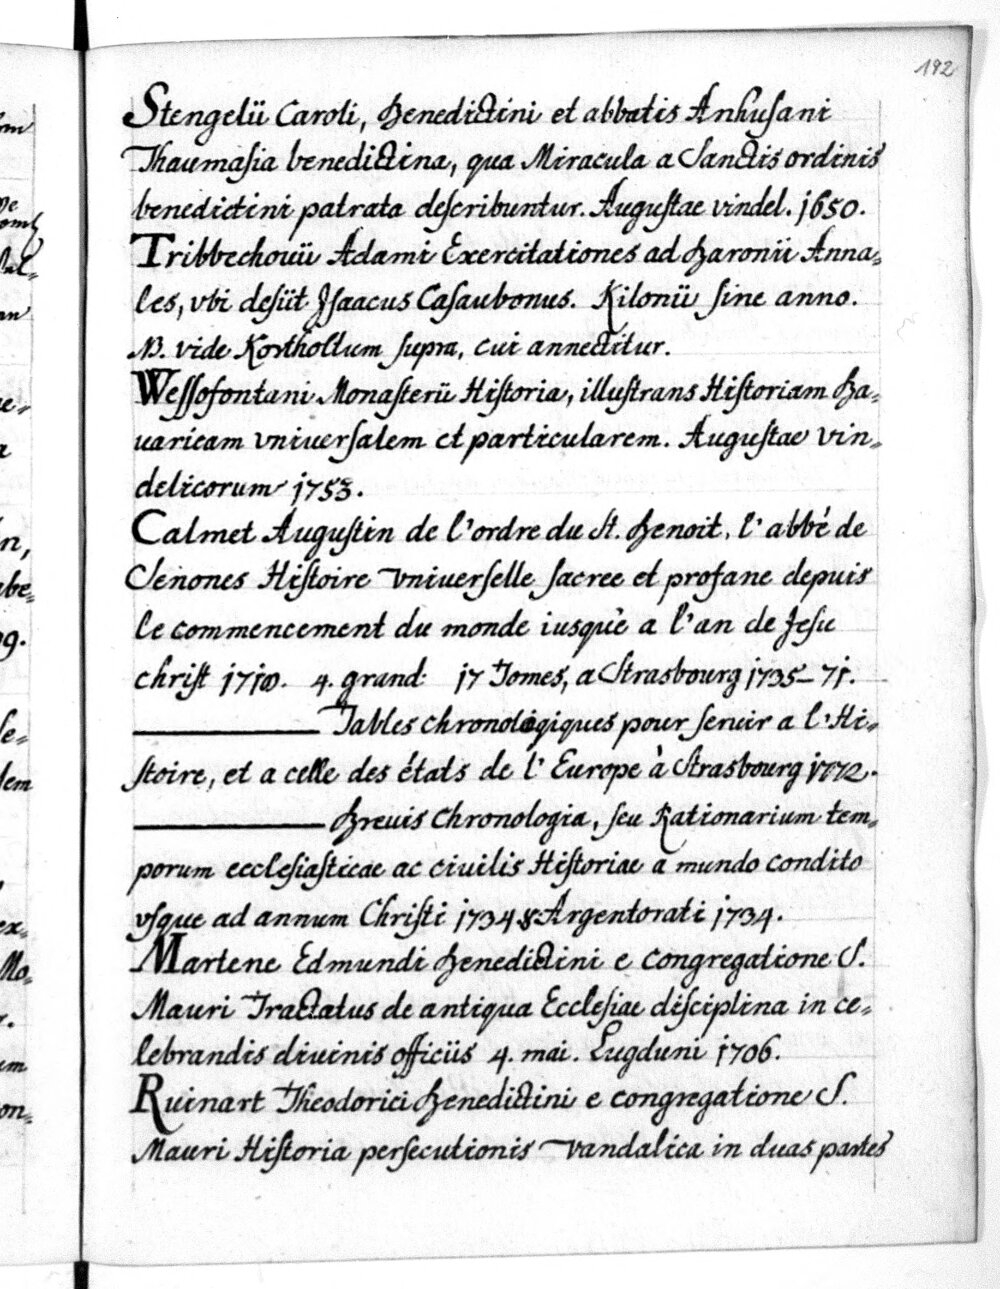 192
Stengelii Caroli, Benedictini et abbatis Anhusani
Thaumasia benedictina, qua Miracula a Sanctis ordinis
benedictini patrata describuntur. Augustae vindel. 1650.
Tribbechouii Adami Exercitationes ad Baronii Anna-
les, vbi desiit Isaacus Casaubonus. Kilonii sine anno.
NB. vide Kortholtum supra, cui annectitur.
Wessofontani Monasterii Historia, illustrans Historiam Ba-
uaricam vniuersalem et particularem. Augustae vin-
delicorum 1753.
Calmet Augustin de l'ordre du St. Benoit, l'abbé de
Senones Histoire vniuerselle sacree et profane depuis
le commencement du monde iusquè a l'an de Jesu
christ 1710. 4. grand: 17 Tomes, a Strasbourg 1735-71.
Tables chronologiques pour seruir a l'Hi-
stoire, et a celle des états de l'Europe à Strasbourg 1772.
Breuis Chronologia, seu Rationarium tem-
porum ecclesiasticae ac ciuilis Historiae a mundo condito
vsque ad annum Christi 1734 Argentorati 1734.
Martene Edmundi Benedictini e congregatione S.
Mauri Tractatus de antiqua Ecclesiae disciplina in ce-
lebrandis diuinis officiis 4. mai. Lugduni 1706.
Ruinart Theodorici Benedictini e congregatione S.
Mauri Historia persecutionis vandalica in duas partes